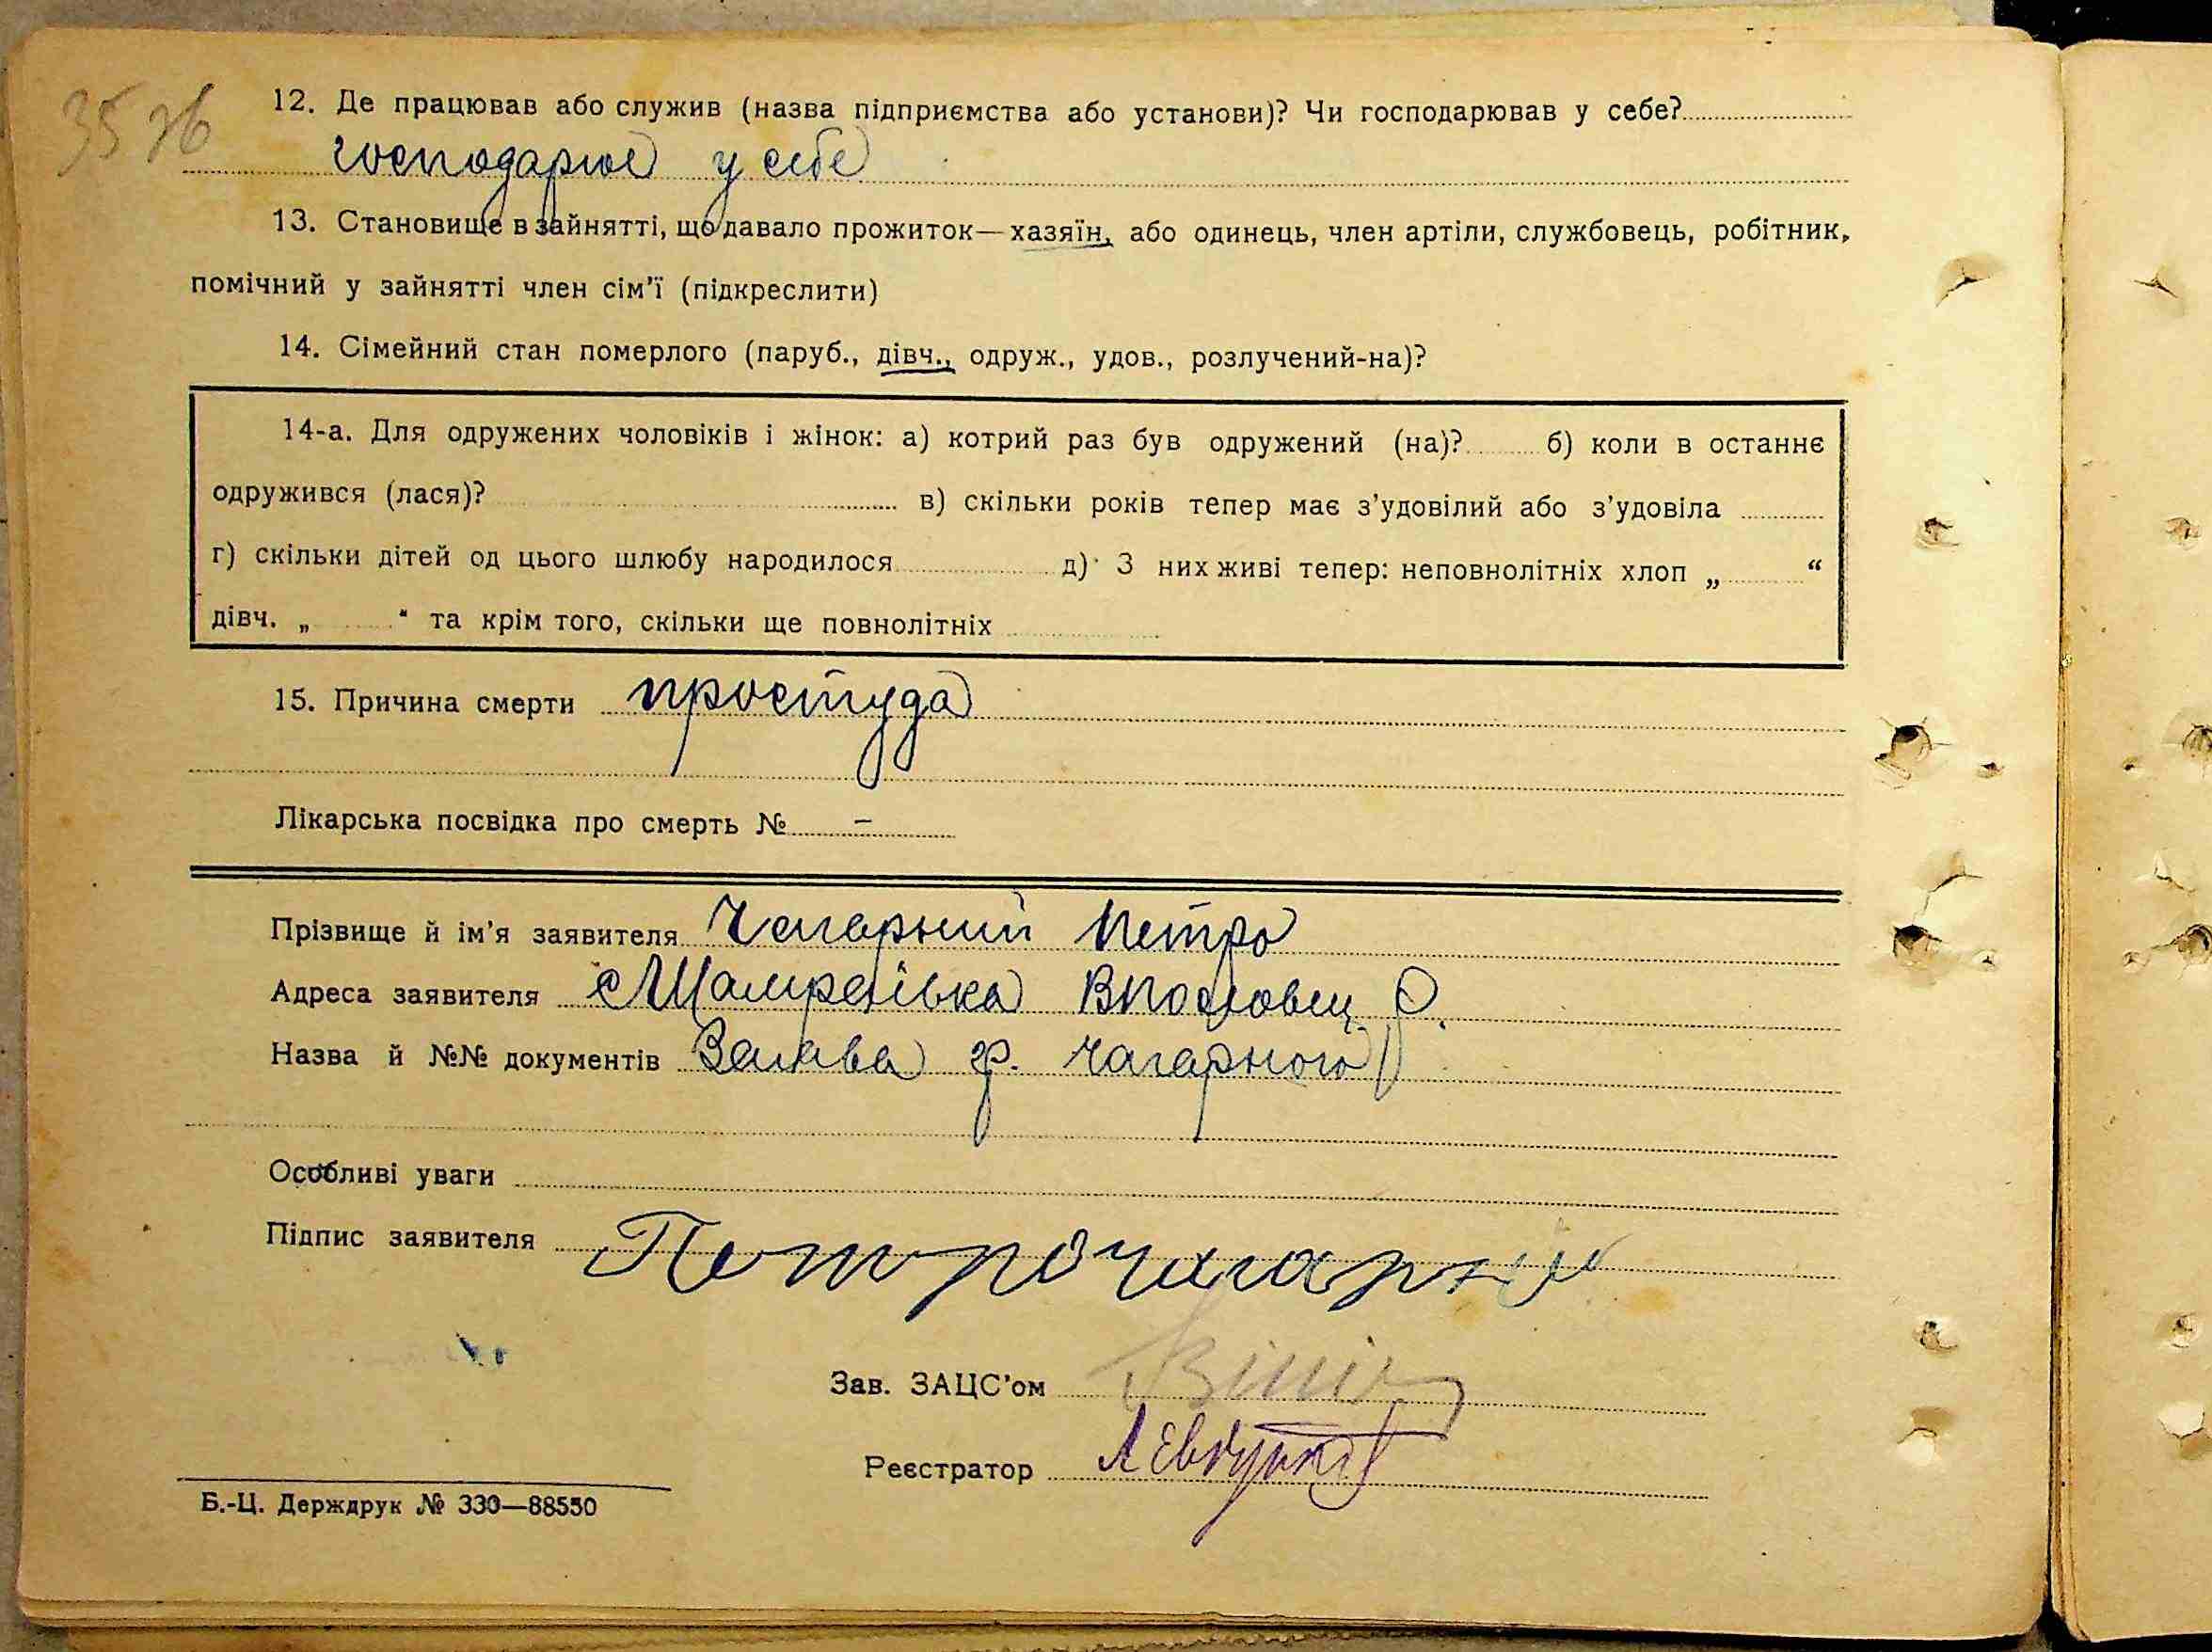 35 зв
12. Де працював або служив (назва підприємства або установи)? Чи господарював у себе?
господарює у себе
13. Становище в зайнятті, що давало прожиток—хазяїн, або одинець, член артіли, службовець, робітник,
помічний у зайнятті член сім'ї (підкреслити)
14. Сімейний стан померлого (паруб., дівч., одруж., удов., розлучений-на)?
14-а. Для одружених чоловіків і жінок: а) котрий раз був одружений (на)? б) коли в останнє
одружився (лася)? в) скільки років тепер має з'удовілий або з'удовіла
г) скільки дітей од цього шлюбу народилося д) З них живі тепер: неповнолітніх хлоп „ “
дівч. „ “ та крім того, скільки ще повнолітніх
15. Причина смерти простуда
Лікарська посвідка про смерть № –
Прізвище й ім'я заявителя Чагарний Петро
Адреса заявителя с Шамраївка
Назва й №№ документів Заява гр. Чагарного
Особливі уваги
Підпис заявителя Петро Чагарний
Зав. ЗАЦС'ом
Реєстратор
Б.-Ц. Держдрук № 330—88550